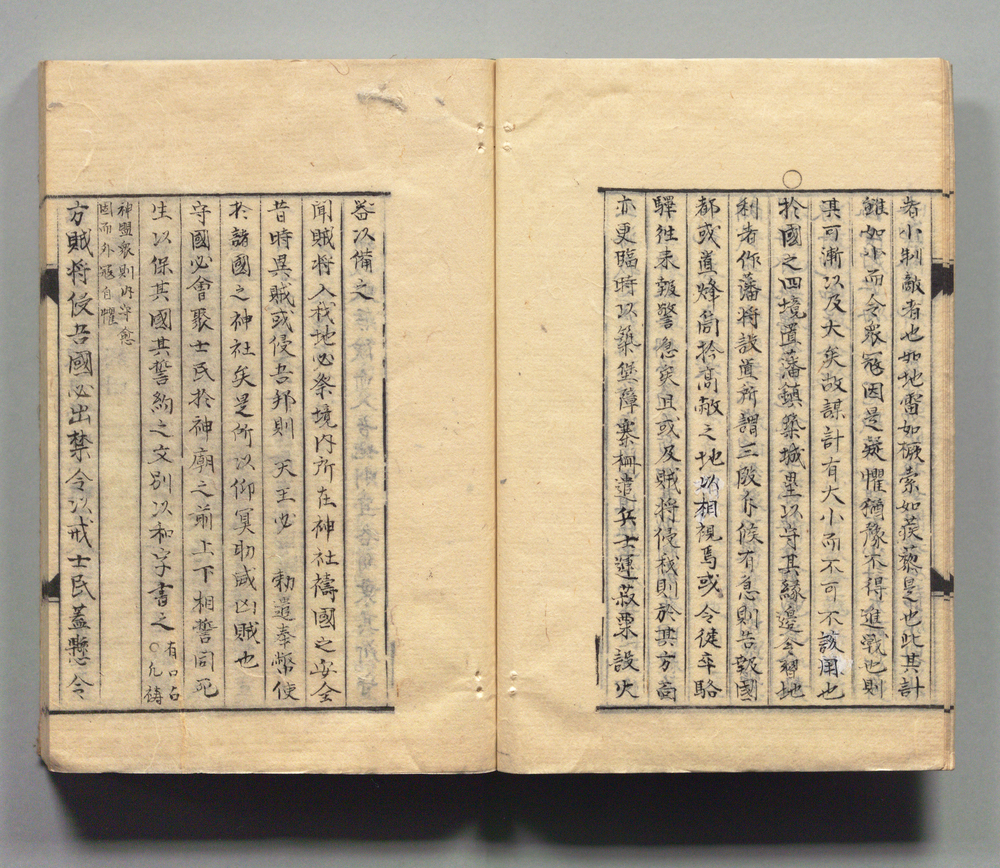 者小制敵者也如地雷如橛索如蒺藜是也此其計
雖如小而令衆寇因是疑懼猶豫不得進戰也則
其可漸以及大矣故謀計有大小而不可不該用也
〇
於國之四境置藩鎮築城壘以守其緣邊令習地
利者作藩將設置所謂三段斥候有急則告報國
都或置烽筒於高敞之地以相視焉或令徒卒駱
驛往来報警急矣且或及賊將侵我則於其方面
亦更臨時以築堡障寨柵遣兵士運菽粟設火
器以備之
聞賊将入我地必祭境内所在神社禱國之安全
昔時異賊或侵吾邦則 天王必 勅遣奉幣使
於諸國之神社矣是所以仰冥助滅凶賊也
守國必會聚士民於神廟之前上下相誓同死
生以保其國其誓約之文別以和字書之
有口占
〇凡禱
神盟衆則内守愈
因而外寇自懼
方賊将侵吾國必出禁令以戒士民蓋懸令